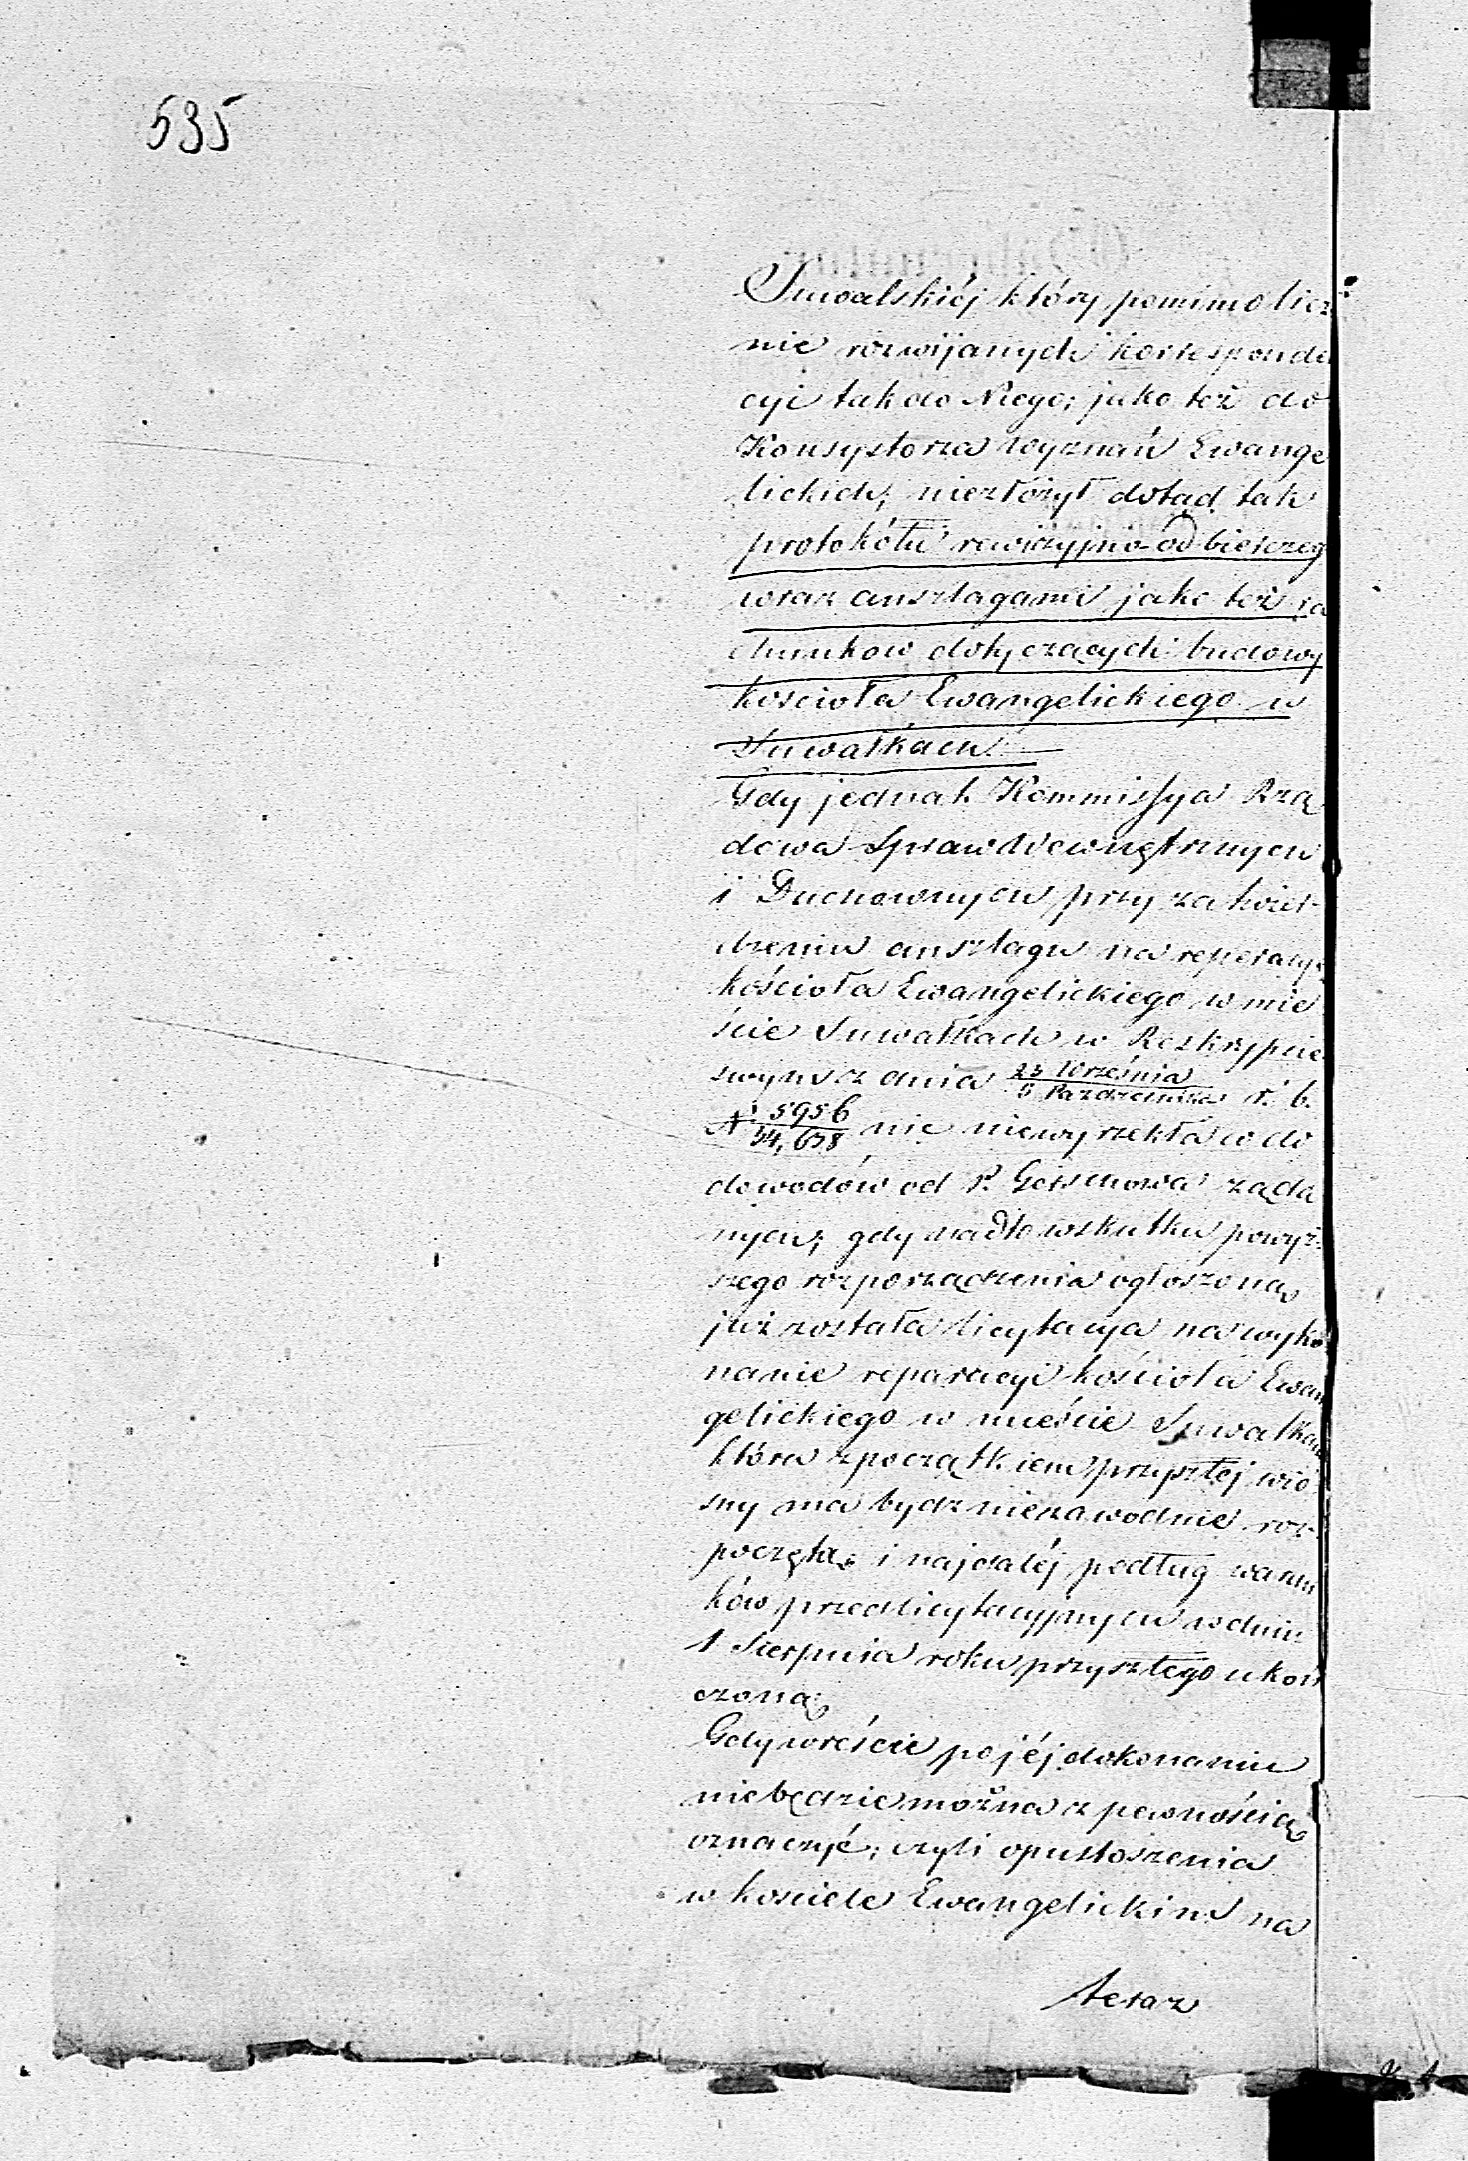 535
Suwalskiéj który pomimo licz
nie rozwijanych korresponde
cyi tak do Niego, jako też do
Konsystorza wyznań Ewange
lickich, niezłożył dotąd tak
protokółu rewizyjno-odbiorczeg
wraz anszlagami jako też ra
chunkow dotyczących budowy
kościoła Ewangelickiego w
Suwałkach.
Gdy jednak Kommissya Rzą
dowa Spraw Wewnętrznych
i Duchownych przy zatwier-
dzeniu anszlagu na reperacyę
kościoła Ewangelickiego w mie
ście Suwałkach w Reskrypcie
swym z dnia 23 Września / 5 Października r. b.
N 5956 / 34,678 nic niewyrzekła w do
dowodów od P. Gerschowa żąda
nych; gdy nadto wskutku powyż-
szego rozporządzenia ogłoszona
już została licytacya na wyko
nanie reparacyi kościoła Ewan
gelickiego w mieście Suwałkach
która z początkiem przyszłéj wio
sny ma bydz niezawodnie roz-
poczęta i najdaléj podług warun
ków przedlicytacyjnych w dniu
1 Sierpnia roku przyszłego ukoń
czona;
Gdy wreście po jéj dokonaniu
niebędzie można z pewnością
oznaczyć, czyli opustoszenia
w kościele Ewangelickim na
teraz